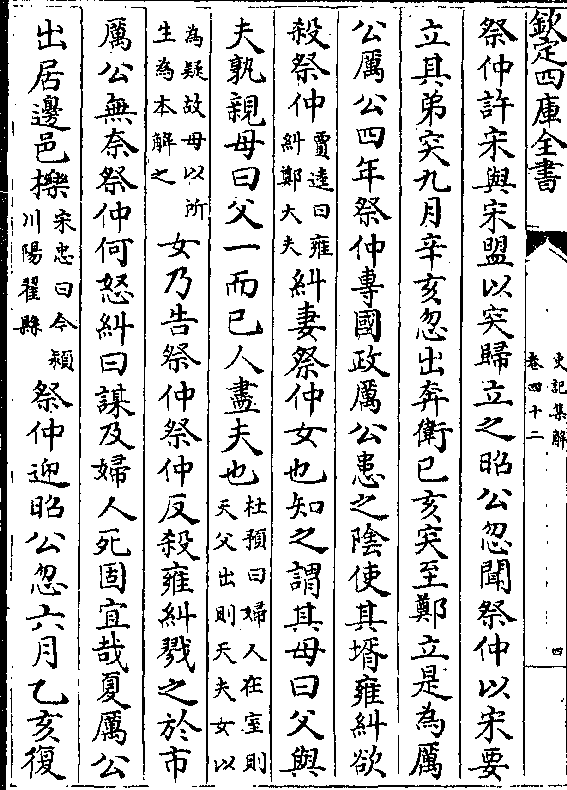 欽定四庫全書
史記集解
卷四十二
四
祭仲許宋與宋盟以突歸立之昭公忽聞祭仲以宋要
立其弟突九月辛亥忽出奔衛已亥突至鄭立是為厲
公厲公四年祭仲專國政厲公患之陰使其壻雍糾欲
殺祭仲賈逵曰雍糾鄭大夫糾妻祭仲女也知之謂其母曰父與
夫孰親母曰父一而已人盡夫也杜預曰婦人在室則天父出則天夫女以
為疑故母以所生為本解之女乃告祭仲祭仲反殺雍糾戮之於市
厲公無奈祭仲何怒糾曰謀及婦人死固宜哉夏厲公
出居邊邑櫟宋忠曰今潁川陽翟縣祭仲迎昭公忽六月乙亥復